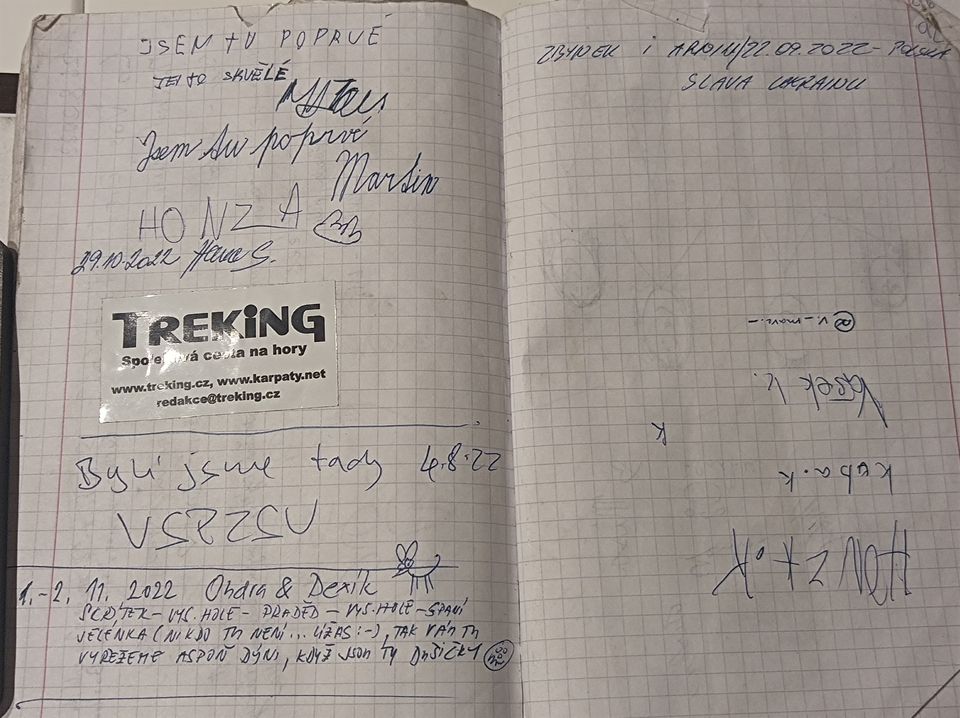 JSEM TU POPRVÉ
JE TO SKVĚLÉ
Jsem tu poprvé
Martin
HONZA
29.10.2022 Hana S.
TREKiNG
Společná cesta na hory
www.treking.cz, www.karpaty.net
redakce@treking.cz
Byli jsme tady 4.8.22
1.-2. 11. 2022 Ondra & Dexík
SKŘÍTEK - VYS. HOLE - PRADĚD - VYS. HOLE - SPANÍ
JELENKA (NIKDO TU NENÍ... ÚŽAS :-), TAK VÁM TU
VYŘEŽEME ASPOŇ DÝNI, KDYŽ JSOU TY DUŠIČKY
ZBYNEK i 22.09.2022 - POLSKA
SLAVA UKRAINU
Honz K
kuba.k
K
Vašek K.